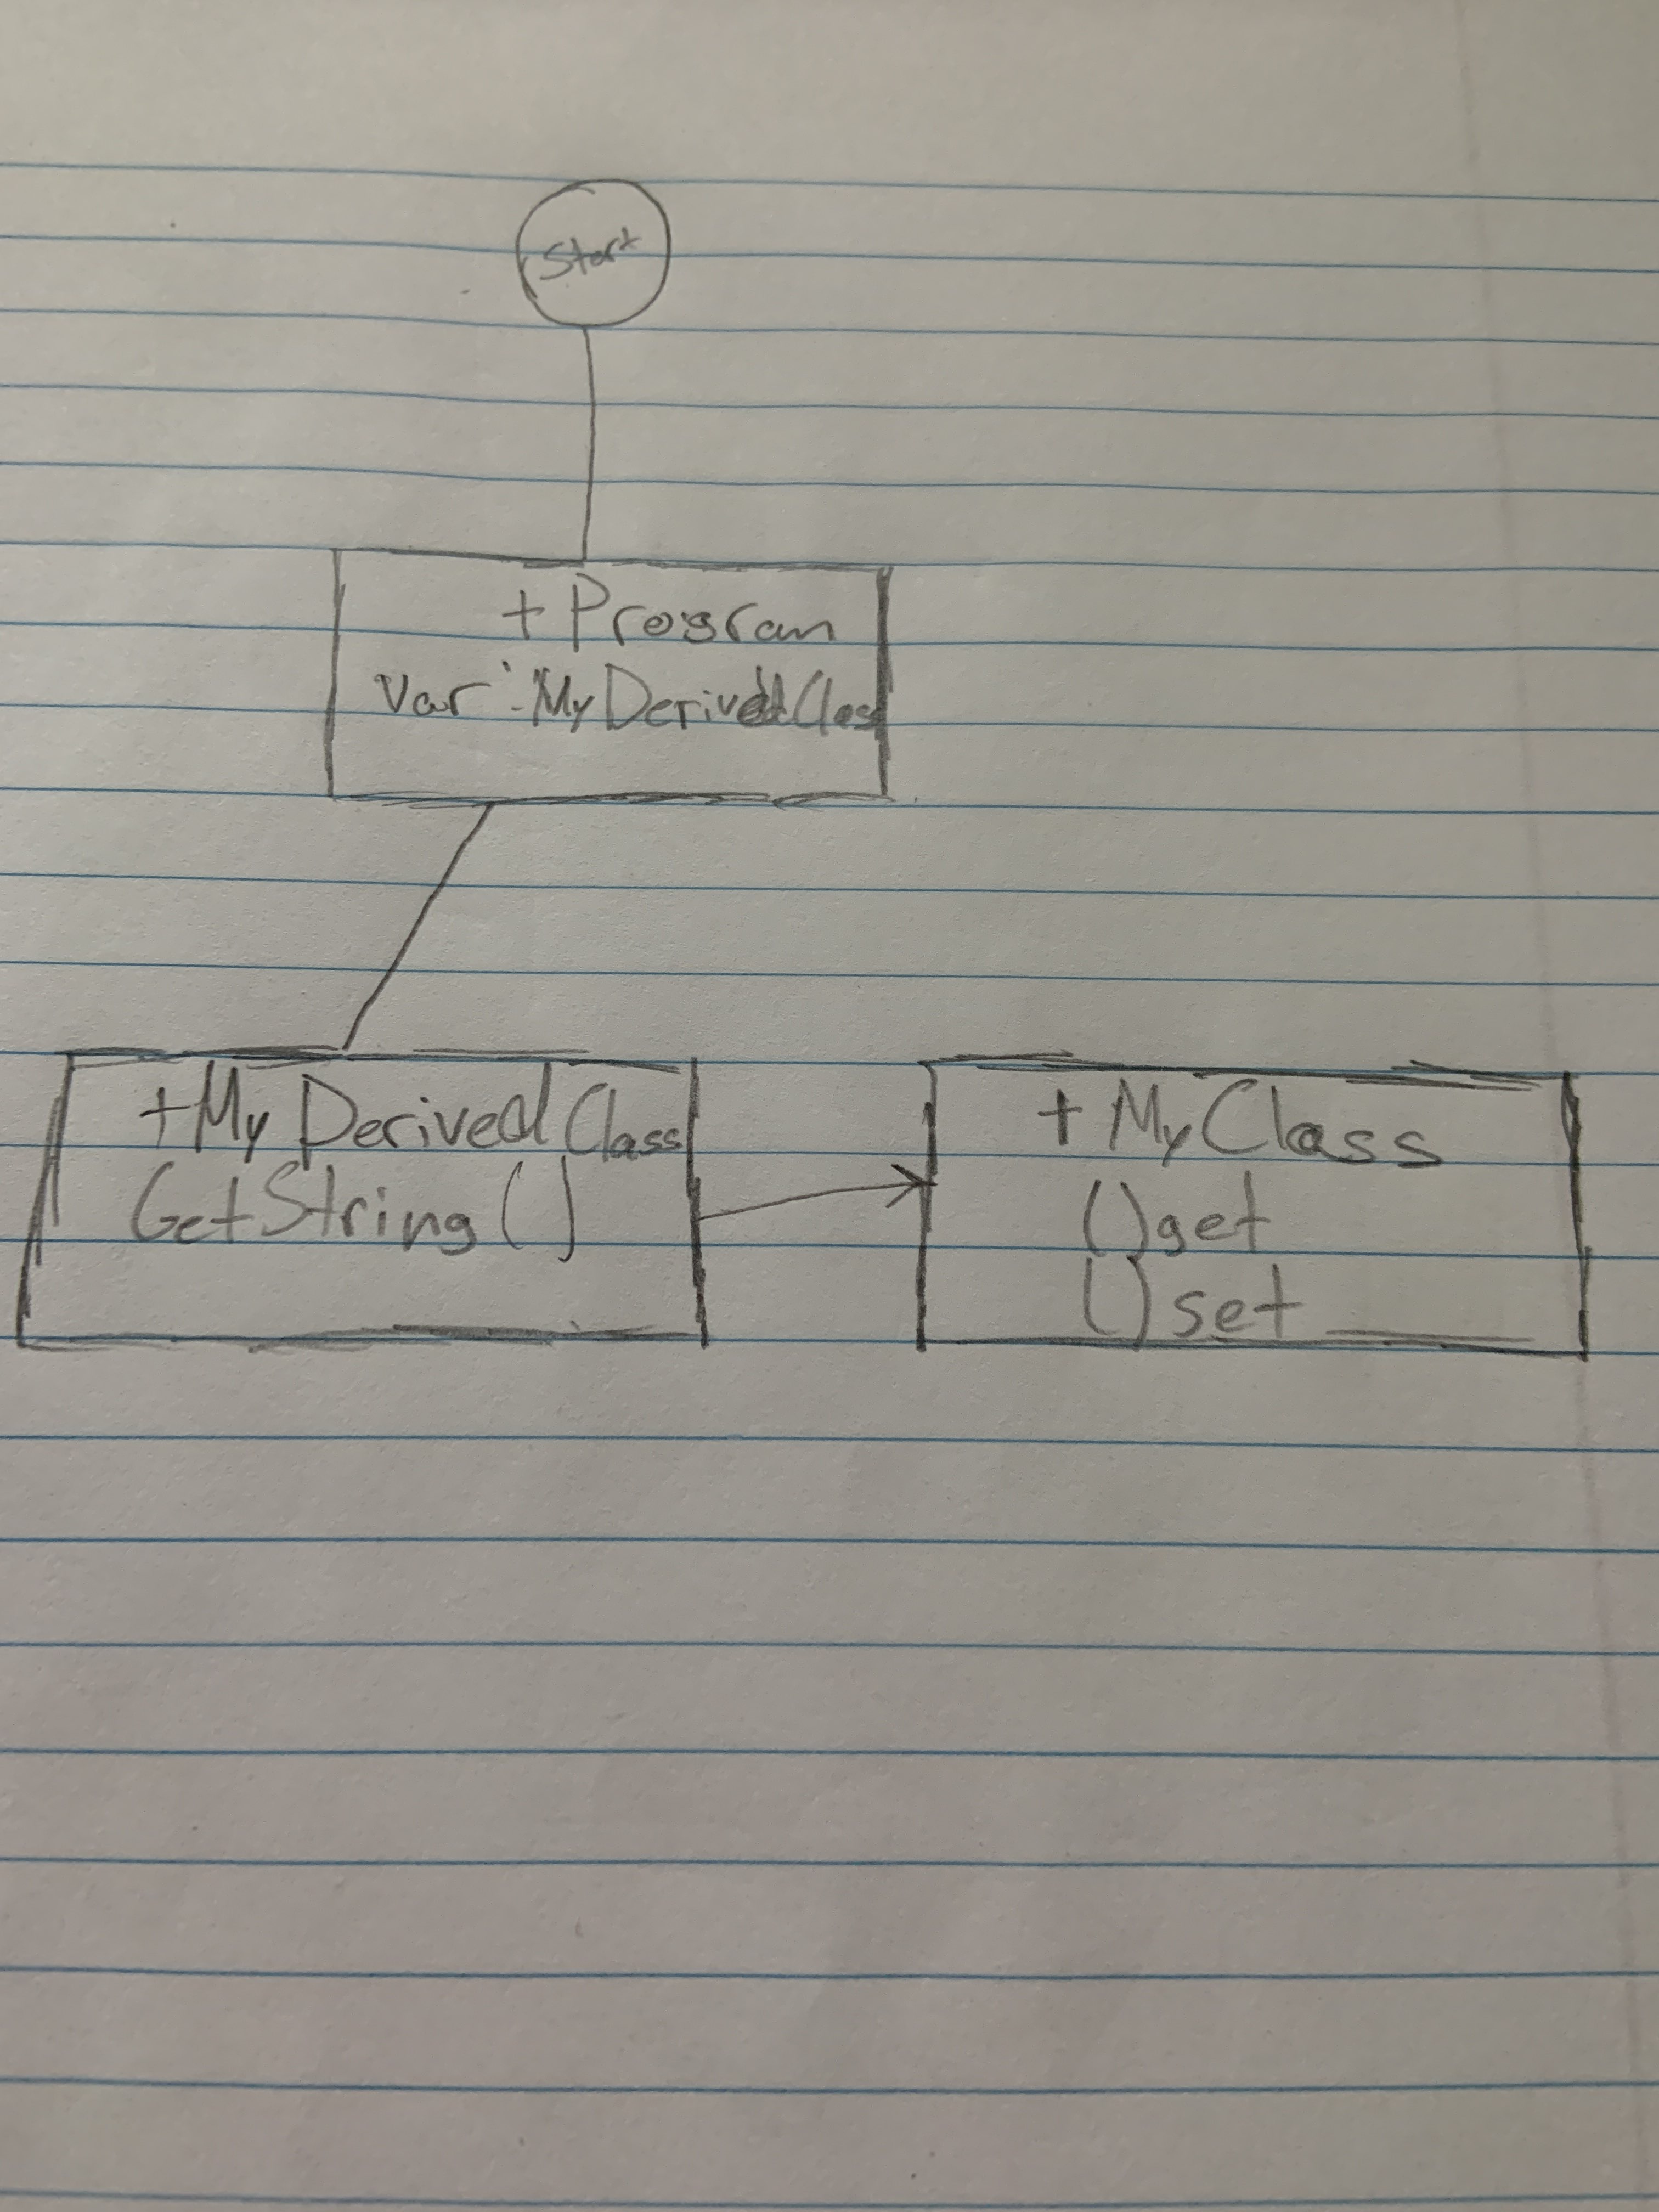 Start
+ Program
var : MyDerivedClass
+My Derived Class
GetString()
+ MyClass
()get
()set